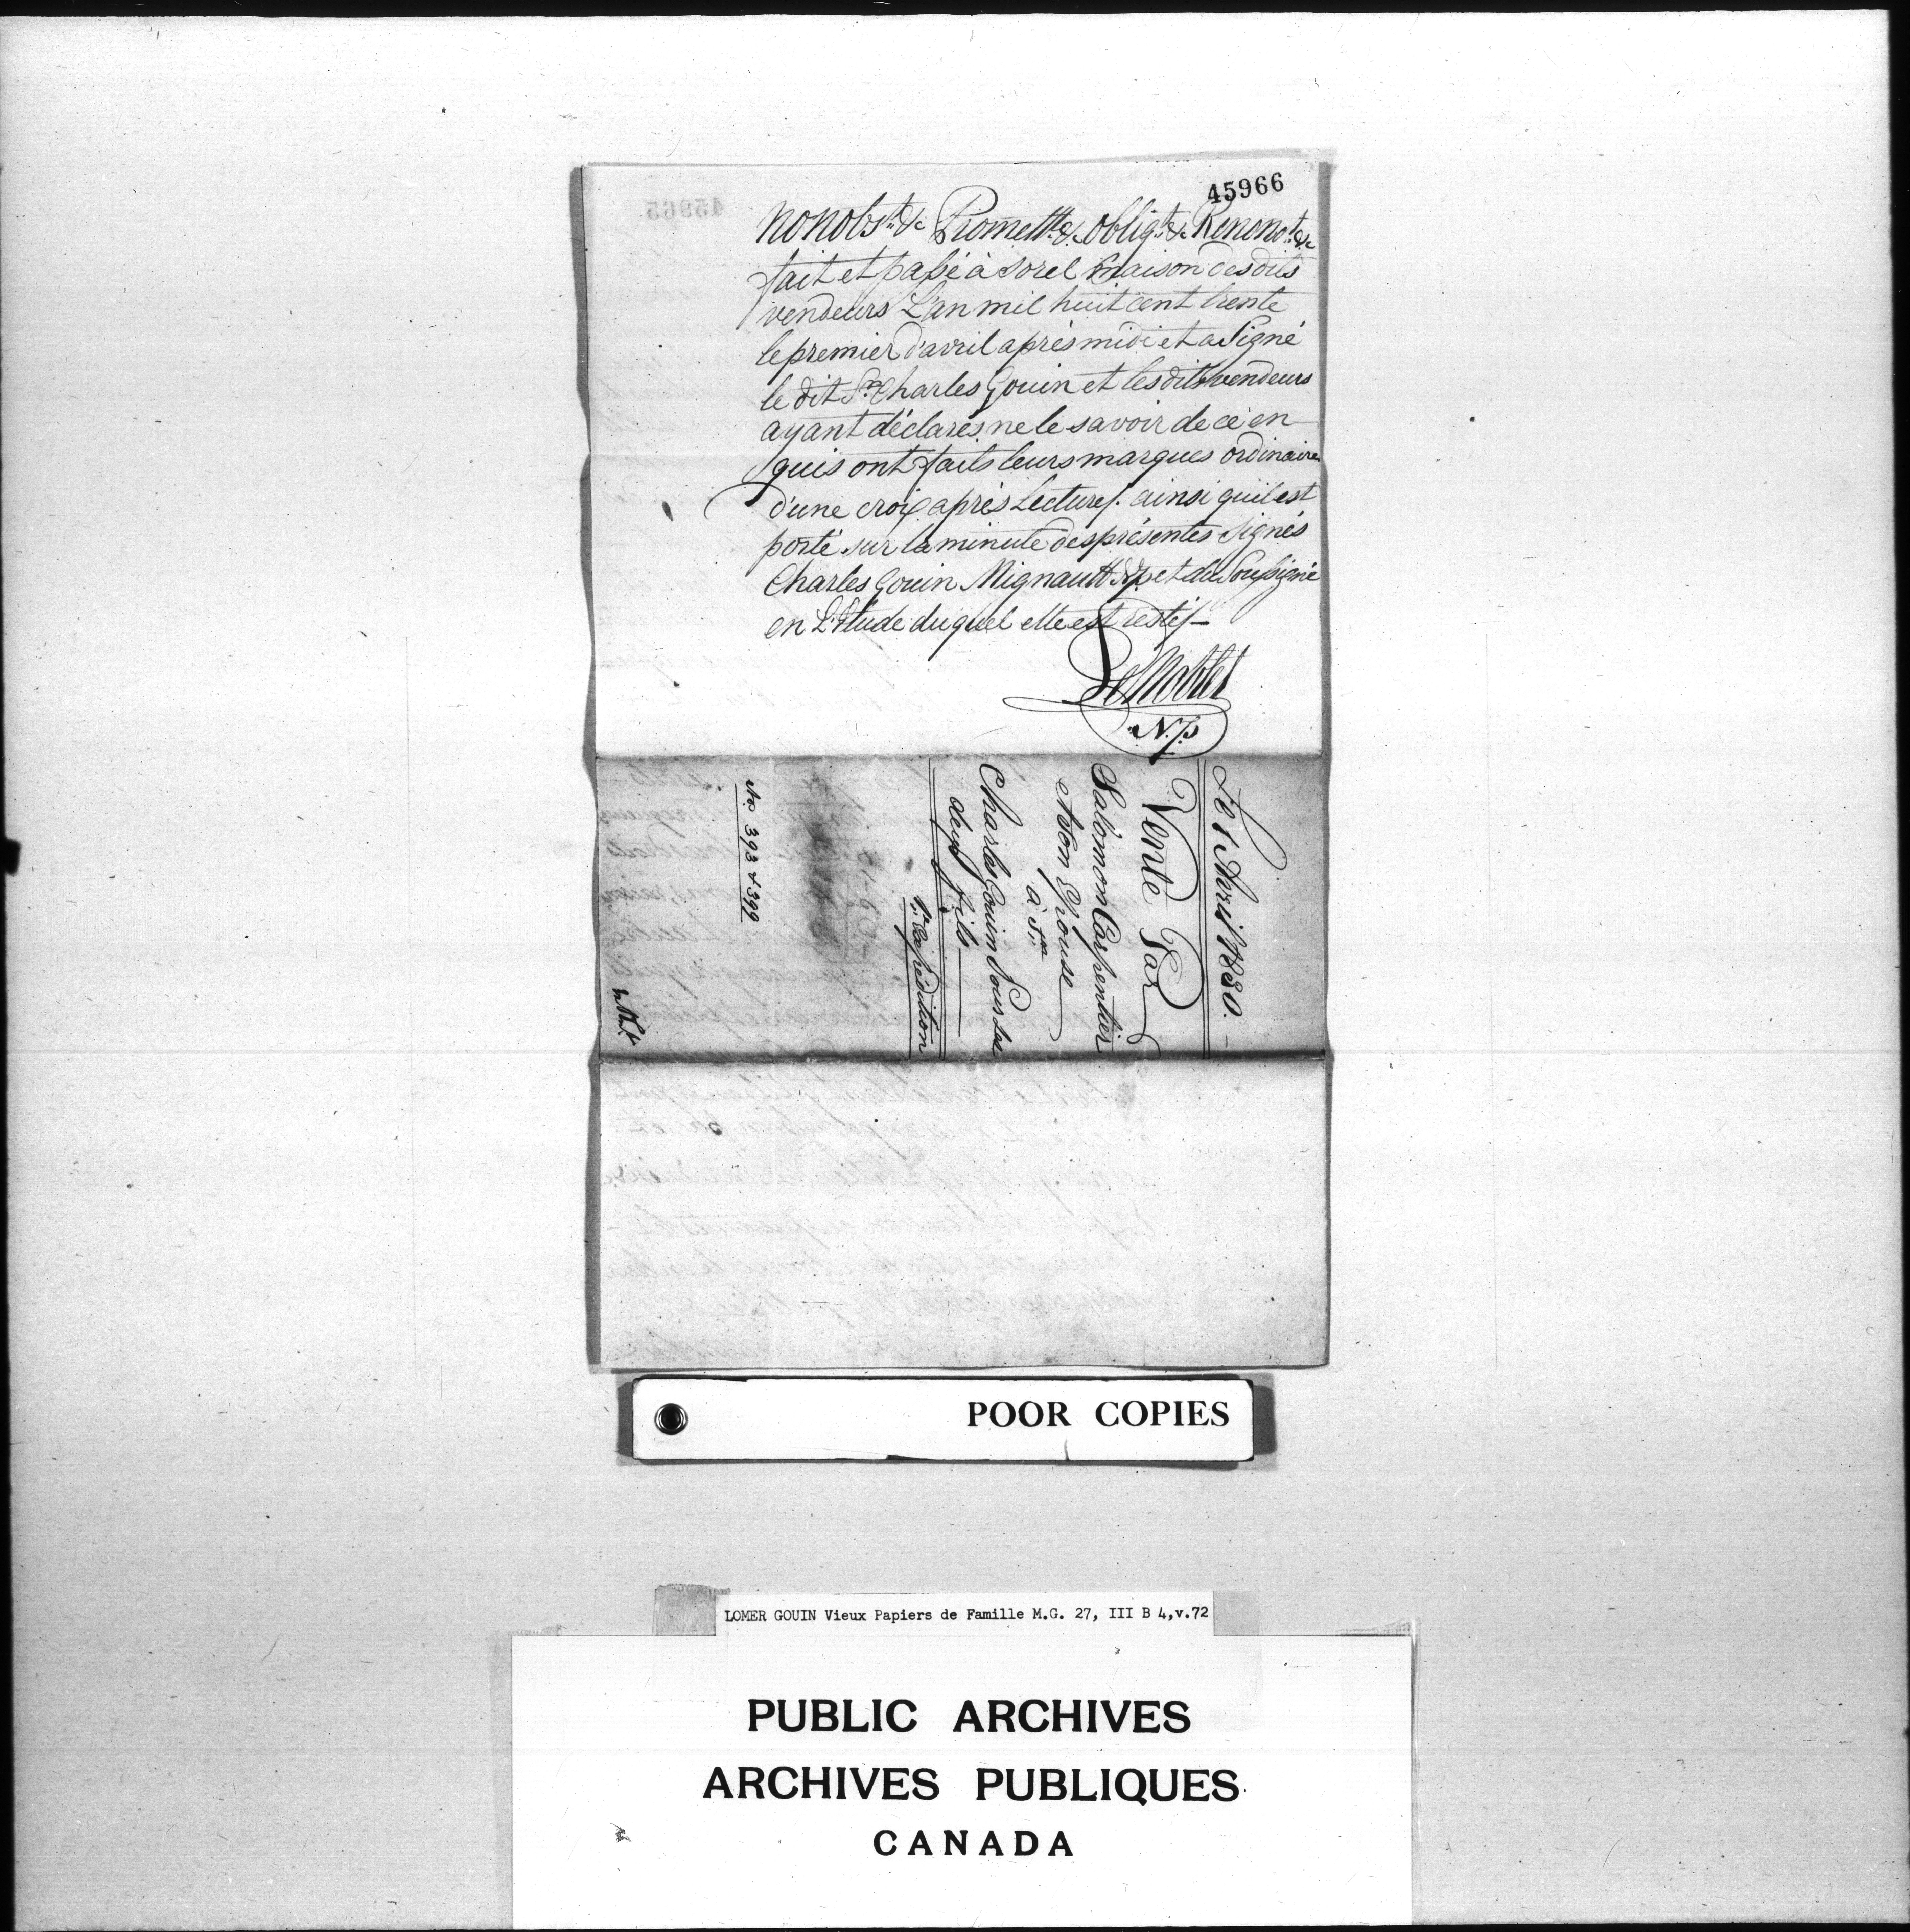 45966
nonobst. &c Promett. &c obligt. &c Renonct. &c
fait et passé à Sorel maison des dits
vendeurs L'an mil huit cent trente
le premier d'avril après midi et a Signé
le dit Sr. Charles Gouin et les dits vendeurs
ayant déclarés ne le savoir de ce en
quis ont faits leurs marques ordinaires
d'une croix après Lecture/. ainsi qu'il est
porté sur la minute des présentes Signés
Charles Gouin Mignault N.P. et du Soussigné
en L'Etude duquel elle est restée/-
N.P.
Le 1 Avril 1830.
Vente Par
Salomon Carpentier
et son Epouse
à Sr.
Charles Gouin Pour ses
deux fils
1re Expédition
No 393 & 399
POOR COPIES
LOMER GOUIN Vieux Papiers de Famille M.G. 27, III B 4,v.72
PUBLIC ARCHIVES
ARCHIVES PUBLIQUES
CANADA